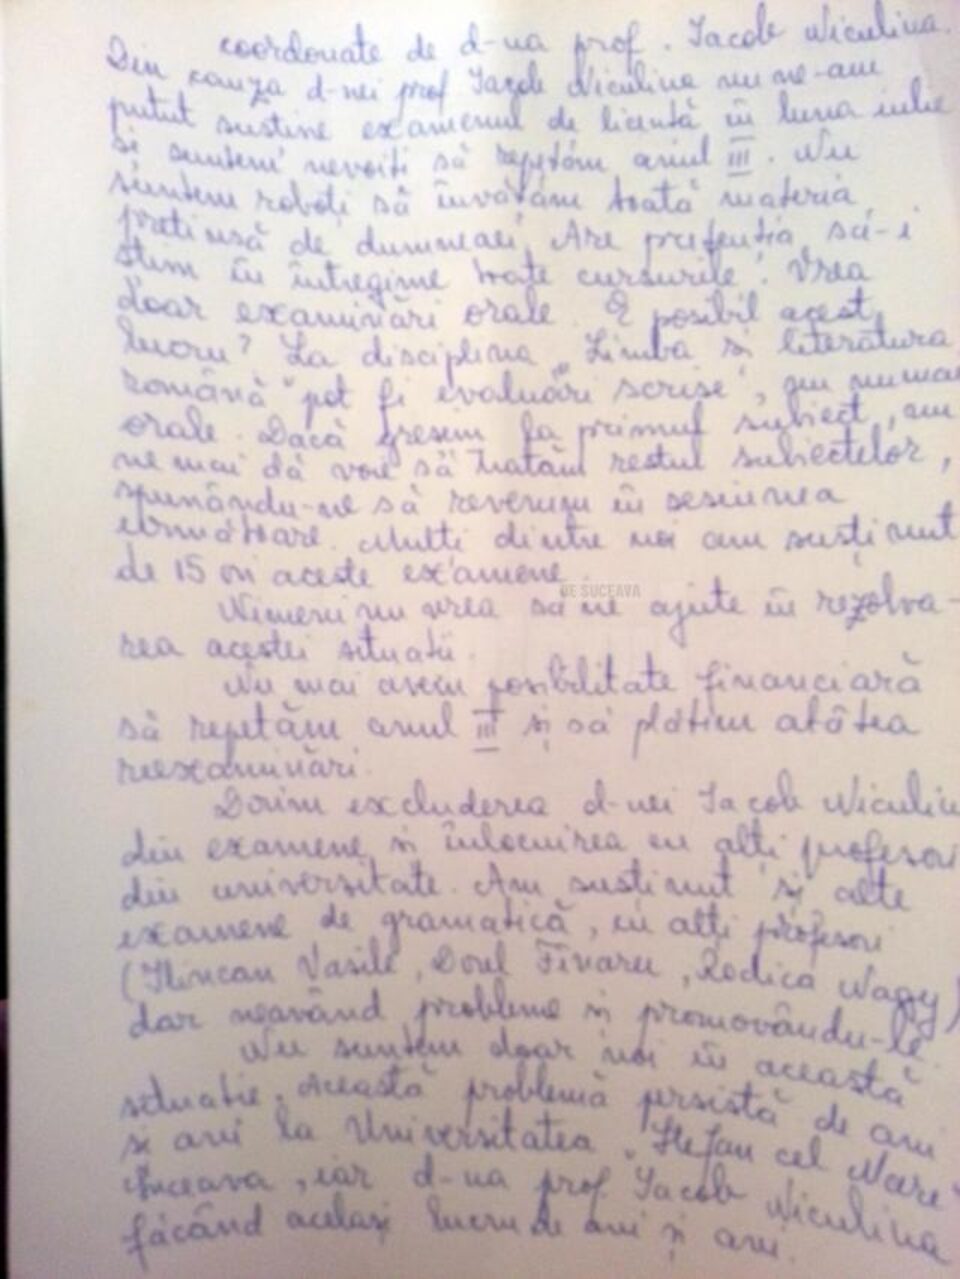 coordonate de d-na prof. Iacob Niculina.
Din cauza d-nei prof Iacob Niculina nu ne-am
putut sustine examenul de licență în luna iulie
și suntem nevoiți să repetăm anul III. Nu
suntem roboți să învățăm toată materia
pretinsă de dumneaei. Are pretenția să-i
știm în întregime toate cursurile. Vrea
doar examinări orale. E posibil acest
lucru? La disciplina „Limba și literatura
română" pot fi evaluări scrise, nu numai
orale. Dacă greșim la primul subiect, nu
ne mai dă voie să tratăm restul subiectelor,
spunându-ne să revenim în sesiunea
următoare. Mulți dintre noi am susținut
de 15 ori aceste examene.
DE SUCEAVA
Nimeni nu vrea să ne ajute în rezolva-
rea acestei situații.
Nu mai avem posibilitate financiară
să repetăm anul III și să plătim atâtea
reexaminări.
Dorim excluderea d-nei Iacob Niculin
din examene și înlocuirea cu alți profesori
din universitate. Am susținut și alte
examene de gramatică, cu alți profesori
(Ilincan Vasile, Dorel Fînaru, Rodica Nagy)
dar neavând probleme și promovându-le.
Nu suntem doar noi în această
situație. Această problemă persistă de ani
și ani la Universitatea „Ștefan cel Mare"
Suceava, iar d-na prof Iacob Niculina
făcând același lucru de ani și ani.